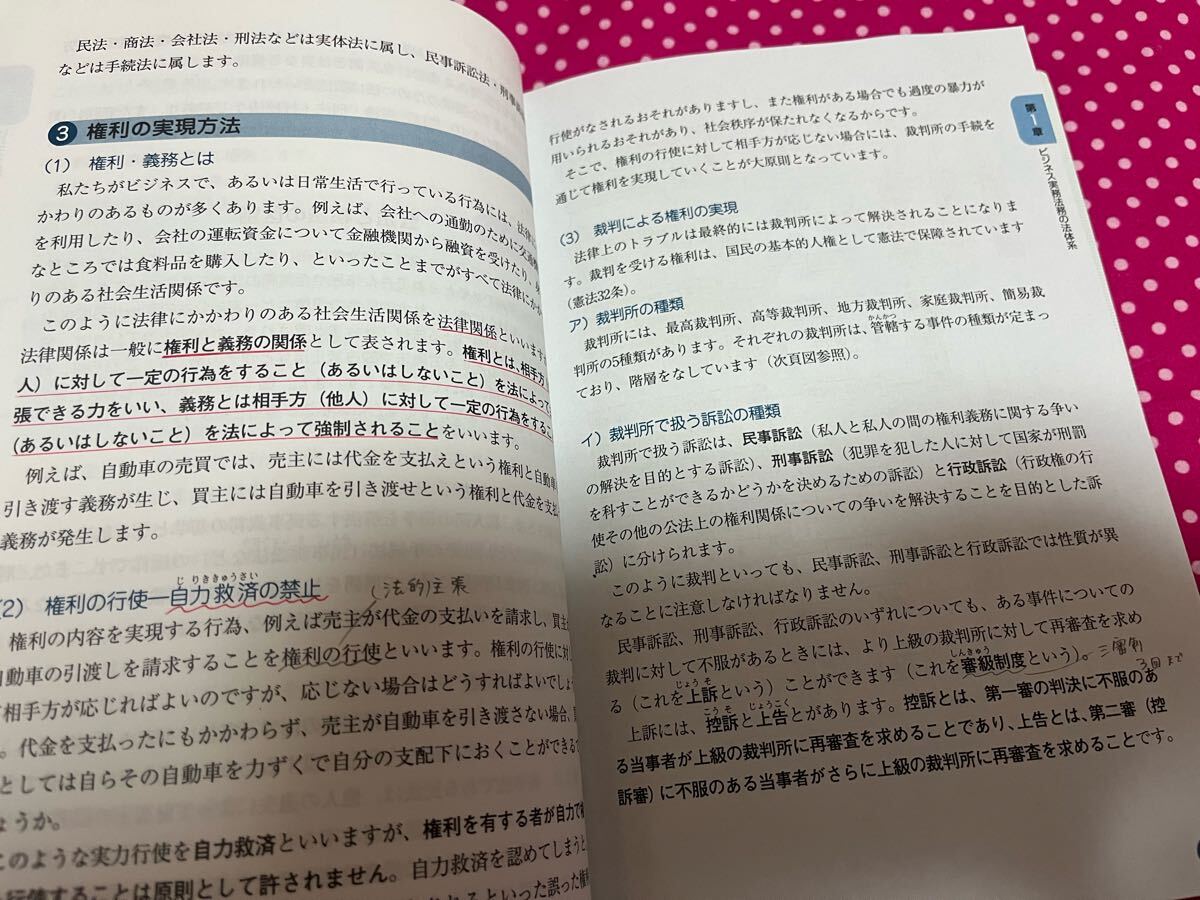 民法・商法・会社法・刑法などは実体法に属し、民事訴訟法・刑事
などは手続法に属します。
3 権利の実現方法
(1) 権利・義務とは
私たちがビジネスで、あるいは日常生活で行っている行為には、法律に
かかわりのあるものが多くあります。例えば、会社への通勤のために交通機
を利用したり、会社の運転資金について金融機関から融資を受けたり、
なところでは食料品を購入したり、といったことまでがすべて法律にか
りのある社会生活関係です。
このように法律にかかわりのある社会生活関係を法律関係といいます
法律関係は一般に権利と義務の関係として表されます。権利とは、相手方
人）に対して一定の行為をすること（あるいはしないこと）を法によって
張できる力をいい、義務とは相手方（他人）に対して一定の行為をするこ
（あるいはしないこと）を法によって強制されることをいいます。
例えば、自動車の売買では、売主には代金を支払えという権利と自動車
引き渡す義務が生じ、買主には自動車を引き渡せという権利と代金を支払
義務が発生します。
じりききゅうさい
2） 権利の行使―自力救済の禁止
法的主張
権利の内容を実現する行為、例えば売主が代金の支払いを請求し、買主
自動車の引渡しを請求することを権利の行使といいます。権利の行使に対
相手方が応じればよいのですが、応じない場合はどうすればよいでしょ
。代金を支払ったにもかかわらず、売主が自動車を引き渡さない場合、
としては自らその自動車を力ずくで自分の支配下におくことができる
ょうか。
このような実力行使を自力救済といいますが、権利を有する者が自力で
行使することは原則として許されません。自力救済を認めてしまうと
されるといった誤った権利
行使がなされるおそれがありますし、また権利がある場合でも過度の暴力が
用いられるおそれがあり、社会秩序が保たれなくなるからです。
そこで、権利の行使に対して相手方が応じない場合には、裁判所の手続を
通じて権利を実現していくことが大原則となっています。
(3) 裁判による権利の実現
法律上のトラブルは最終的には裁判所によって解決されることになりま
す。裁判を受ける権利は、国民の基本的人権として憲法で保障されています
（憲法32条）。
ア）裁判所の種類
裁判所には、最高裁判所、高等裁判所、地方裁判所、家庭裁判所、簡易裁
かんかつ
判所の5種類があります。それぞれの裁判所は、管轄する事件の種類が定まっ
ており、階層をなしています（次頁図参照）。
イ）裁判所で扱う訴訟の種類
裁判所で扱う訴訟は、民事訴訟（私人と私人の間の権利義務に関する争い
の解決を目的とする訴訟）、刑事訴訟（犯罪を犯した人に対して国家が刑罰
を科すことができるかどうかを決めるための訴訟）と行政訴訟（行政権の行
使その他の公法上の権利関係についての争いを解決することを目的とした訴
訟）に分けられます。
このように裁判といっても、民事訴訟、刑事訴訟と行政訴訟では性質が異
なることに注意しなければなりません。
民事訴訟、刑事訴訟、行政訴訟のいずれについても、ある事件についての
裁判に対して不服があるときには、より上級の裁判所に対して再審査を求め
じょうそ しんきゅう
る（これを上訴という）ことができます（これを審級制度という）。
3回まで
こうそ じょうこく
上訴には、控訴と上告とがあります。控訴とは、第一審の判決に不服のあ
る当事者が上級の裁判所に再審査を求めることであり、上告とは、第二審（控
訴審）に不服のある当事者がさらに上級の裁判所に再審査を求めることです。
第1章
ビジネス実務法務の法体系